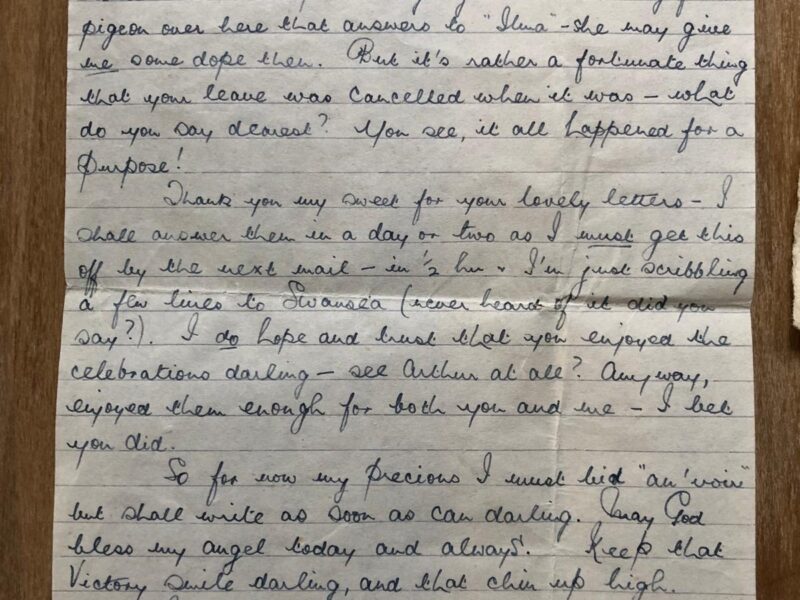 pigeon over here that answers to "Ilma" - she may give
me some dope then. But it's rather a fortunate thing
that your leave was cancelled when it was - what
do you say dearest? You see, it all happened for a
purpose!
Thank you my sweet for your lovely letters - I
shall answer them in a day or two as I must get this
off by the next mail - in ½ hr & I'm just scribbling
a few lines to Swansea (never heard of it did you
say?). I do hope and trust that you enjoyed the
celebrations darling - see Arthur at all? Anyway,
enjoyed them enough for both you and me - I bet
you did.
So for now my precious I must bid "au'voir"
but shall write as soon as can darling. May God
bless my angel today and always. Keep that
Victory smile darling, and that chin up high.